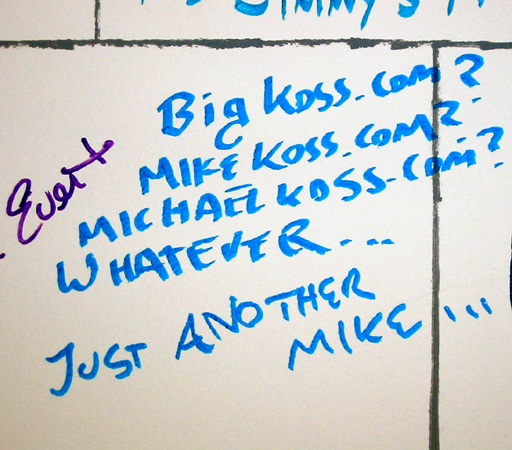 Jimmy's
Big Koss.com?
MIKE Koss.com?
MICHAEL KOSS.com?
WHATEVER...
JUST ANOTHER
MIKE...
Evert